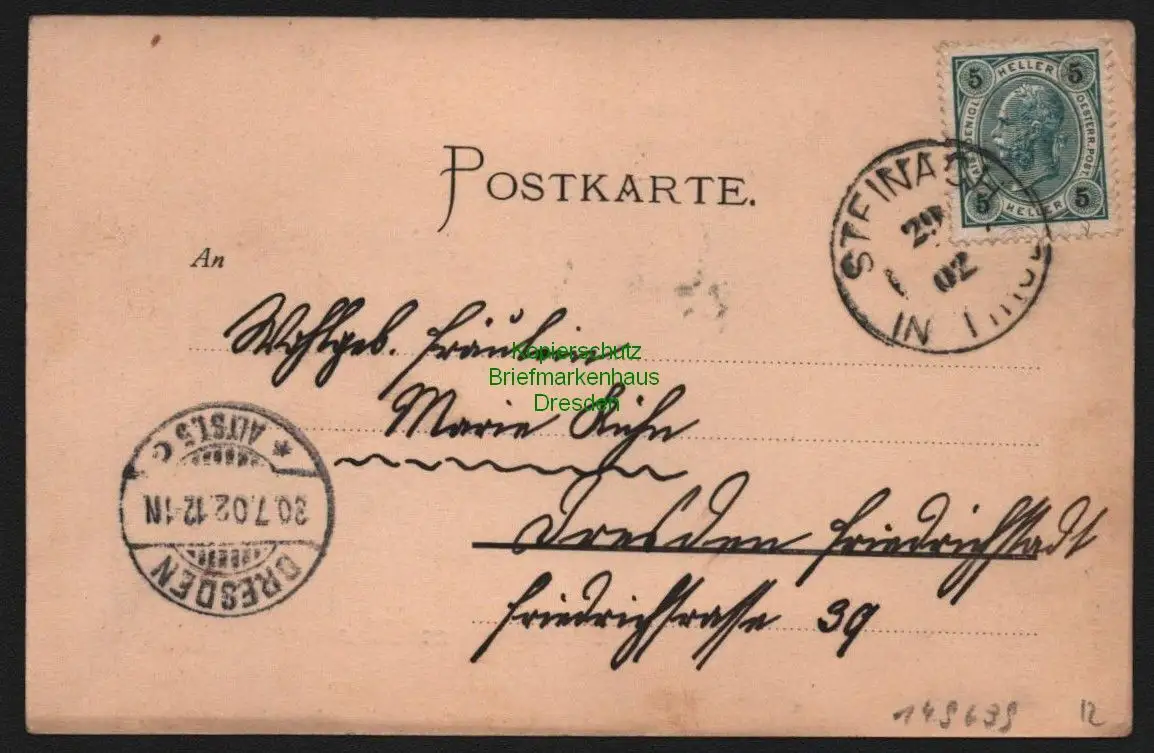 5 HELLER 5
OESTERR. POST.
5 HELLER 5
POSTKARTE.
STEINACH
29
02
IN TIROL
An
Wohlgeb. Fräulein
Kopierschutz
Briefmarkenhaus
Dresden
Marie Kühn
Dresden Friedrichstadt
Friedrichstrasse 39
DRESDEN
30.7.02.12-1N
* ALTST.5 c
149639 12